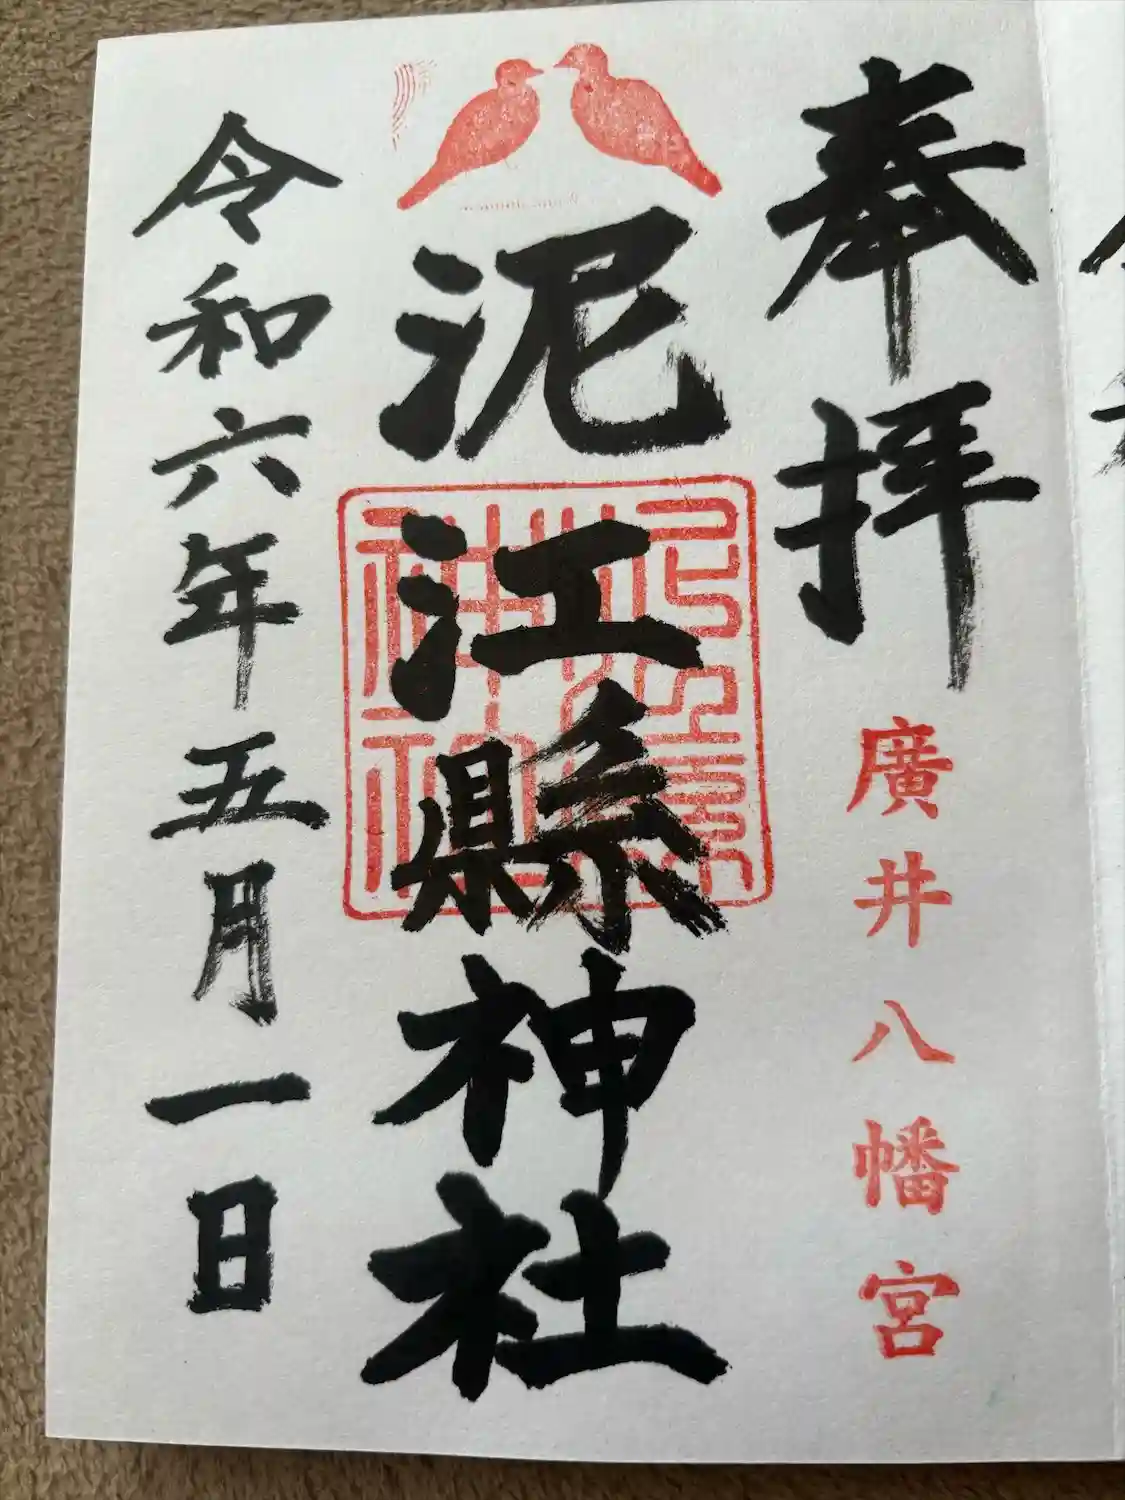 奉拝
廣井八幡宮
泥江縣神社
令和六年五月一日